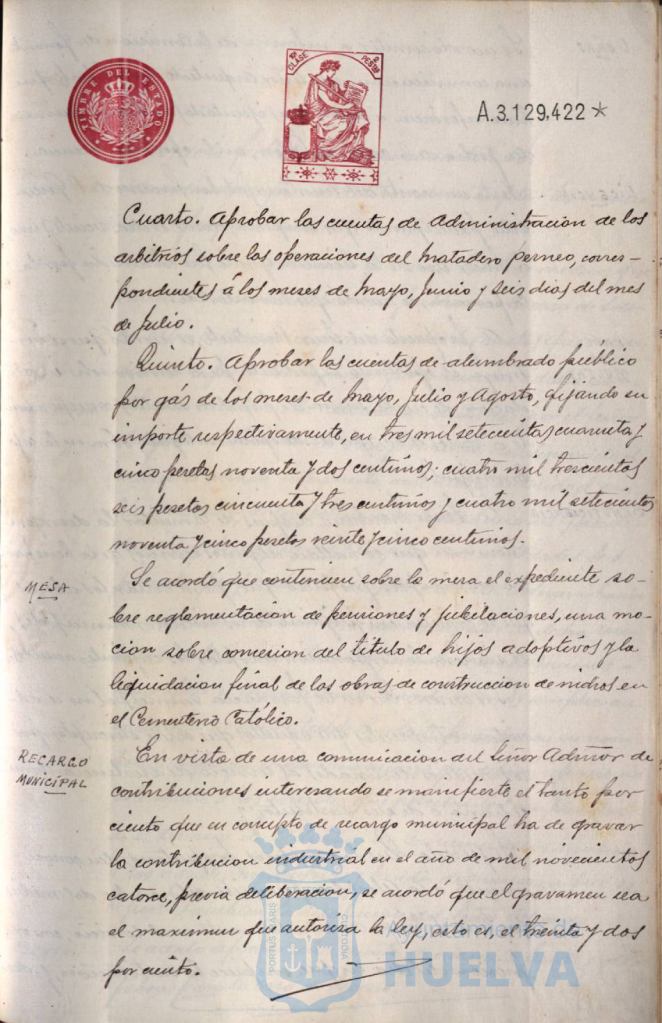 TIMBRE DEL ESTADO
10ª CLASE
2 PESETAS
A.3.129,422*
Cuarto. Aprobar las cuentas de Administracion de los
arbitrios sobre las operaciones del Matadero perneo, corres-
pondientes á los meses de Mayo, Junio y seis dias del mes
de Julio.
Quinto. Aprobar las cuentas de alumbrado público
por gás de los meses de Mayo, Julio y Agosto, fijando su
importe respectivamente, en tres mil setecientas cuarenta y
cinco pesetas noventa y dos centimos; cuatro mil trescientas
seis pesetas cincuenta y tres centimos y cuatro mil setecientas
noventa y cinco pesetas veinte y cinco centimos.
MESA
Se acordó que continuen sobre la mesa el expediente so-
bre reglamentacion de pensiones y jubilaciones, una mo-
cion sobre concesion del titulo de hijos adoptivos y la
liquidacion final de las obras de construccion de nichos en
el Cementerio Católico.
RECARGO
MUNICIPAL
En vista de una comunicacion del Señor Admor de
contribuciones interesando se manifieste el tanto por
ciento que en concepto de recargo municipal ha de gravar
la contribucion industrial en el año de mil novecientos
catorce, previa deliberacion, se acordó que el gravamen sea
el maximun que autoriza la ley, esto es, el treinta y dos
por ciento.
PORTUS MARIS
CUSTODIA
Ayuntamiento de
HUELVA